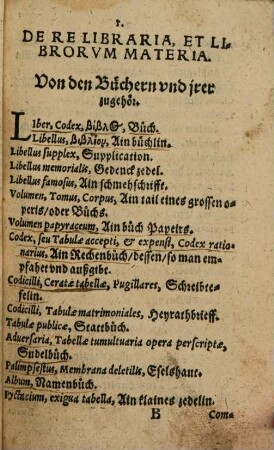 1.
DE RE LIBRARIA, ET LI-
BRORVM MATERIA.
Von den Büchern vnd jrer
zugehör.
Liber, Codex, βίβλος, Büch.
Libellus, βιβλίον, Ain büchlin.
Libellus supplex, Supplication.
Libellus memorialis, Gedenckzedel.
Libellus famosus, Ain schmehschrifft.
Volumen, Tomus, Corpus, Ain tail eines grossen o-
peris/oder Büchs.
Volumen papyraceum, Ain büch Papeirs.
Codex, seu Tabulæ accepti, & expensi, Codex ratio-
narius, Ain Rechenbüch/dessen/so man em-
pfahet vnd außgibt.
Codicilli, Ceratæ tabellæ, Pugillares, Schreibte-
felin.
Codicilli, Tabulæ matrimoniales, Heyrathbrieff.
Tabulæ publicæ, Stattbüch.
Aduersaria, Tabellæ tumultuaria opera perscriptæ,
Sudelbüch.
Palimpsestus, Membrana deletilis, Eselshaut.
Album, Namenbüch.
Pyctacium, exigua tabella, Ain klaines zedelin.
B Com-